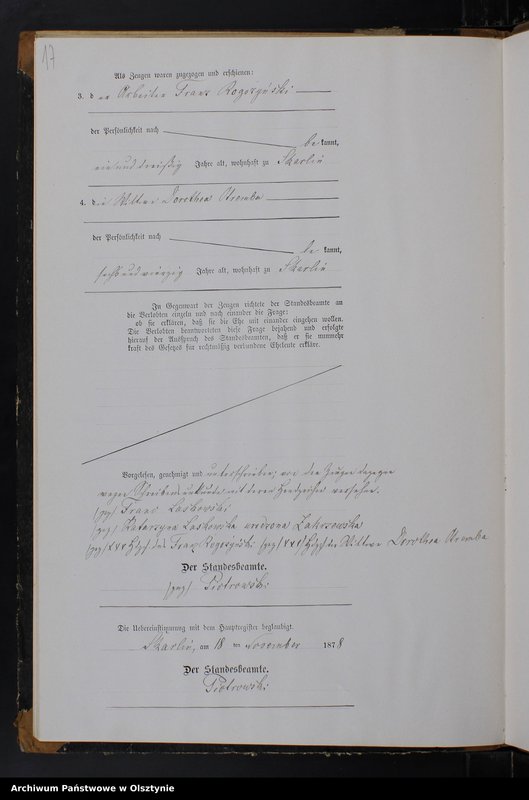 17
Als Zeugen waren zugezogen und erschienen:
3. der Arbeiter Franz Rogozynski
der Persönlichkeit nach
bekannt,
ein und dreißig Jahre alt, wohnhaft zu Skarlin
4. die Wittwe Dorothea Aromba
der Persönlichkeit nach
bekannt,
sechs und vierzig Jahre alt, wohnhaft zu Skarlin
In Gegenwart der Zeugen richtete der Standesbeamte an
die Verlobten einzeln und nach einander die Frage:
ob sie erklären, daß sie die Ehe mit einander eingehen wollen.
Die Verlobten beantworteten diese Frage bejahend und erfolgte
hierauf der Ausspruch des Standesbeamten, daß er sie nunmehr
kraft des Gesetzes für rechtmäßig verbundene Eheleute erkläre.
Vorgelesen, genehmigt und unterschrieben; von den Zeugen dagegen
wegen Schreibensunkunde mit deren Handzeichen versehen.
(gez) Franz Laskowski
(gez) Katarzyna Laskowska
(gez) +++ des Franz Rogozynski (gez) +++ der Wittwe Dorothea Aromba
Der Standesbeamte.
(gez) Piotrowski
Die Uebereinstimmung mit dem Hauptregister beglaubigt.
Skarlin, am 18 ten November 1878
Der Standesbeamte.
Piotrowski
Archiwum Państwowe w Olsztynie